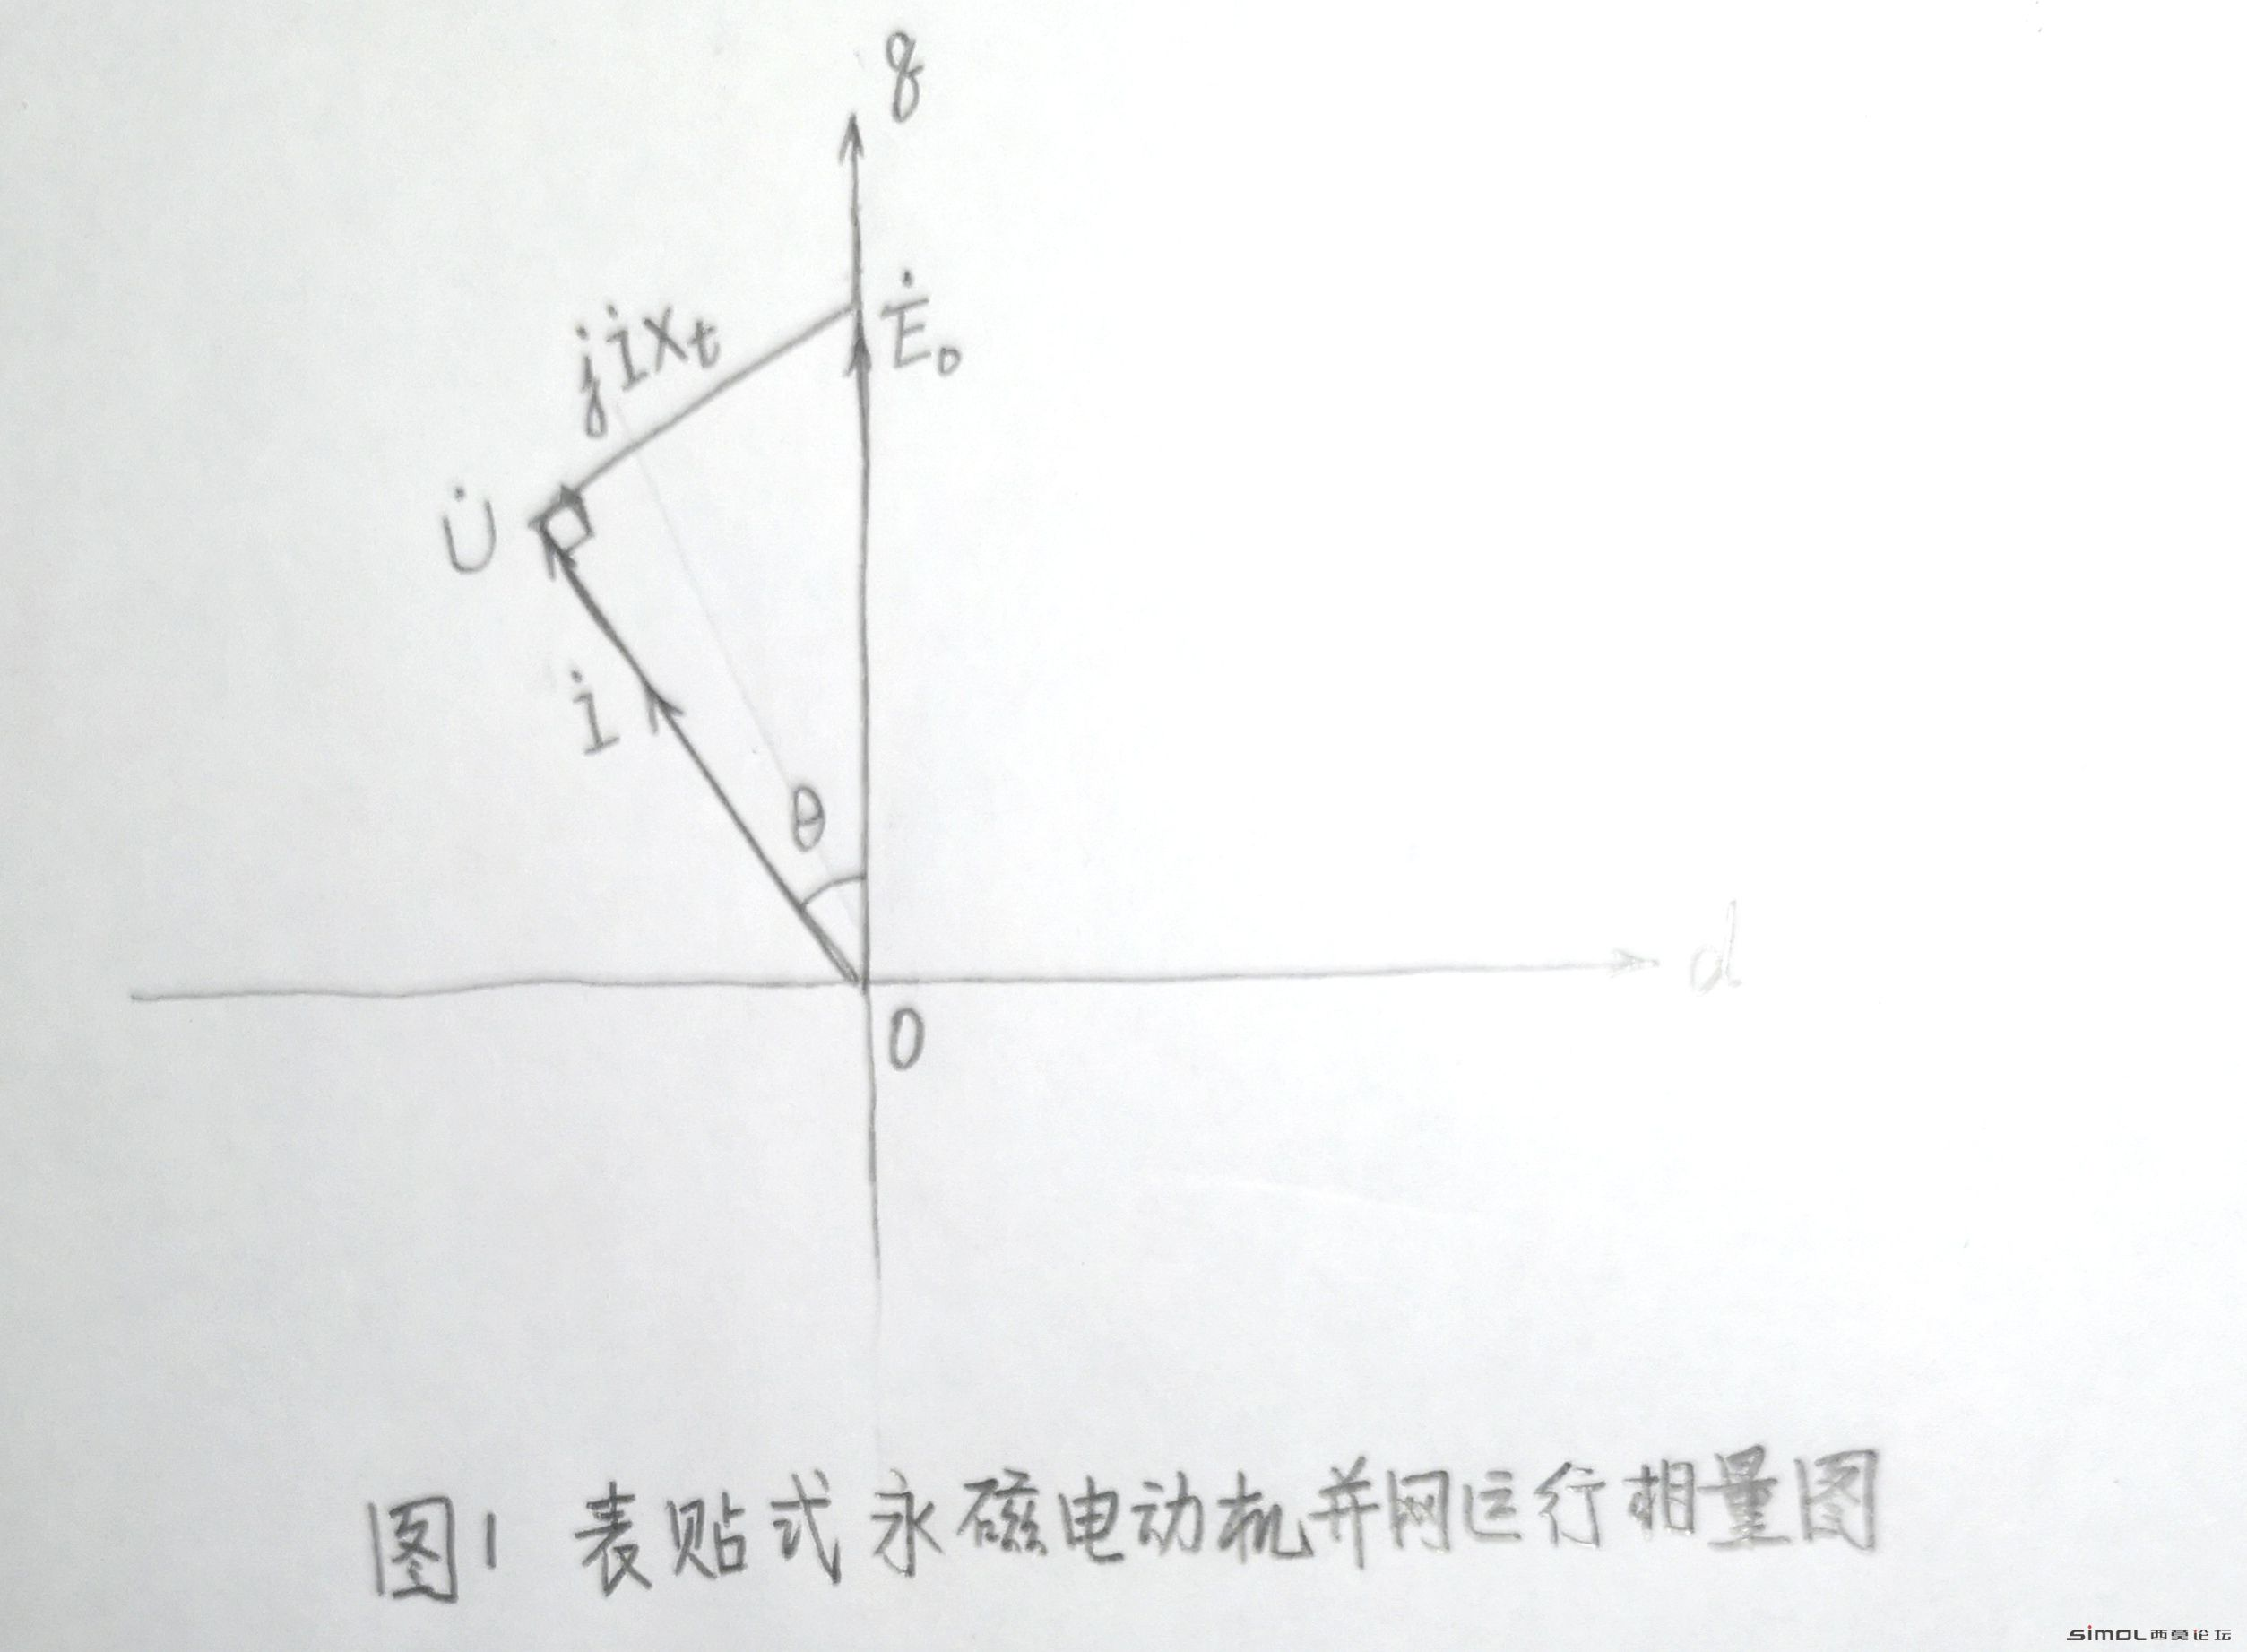 q
Ė₀
jİXt
U̇
İ
θ
d
0
图1 表贴式永磁电动机并网运行相量图
simol西莫论坛